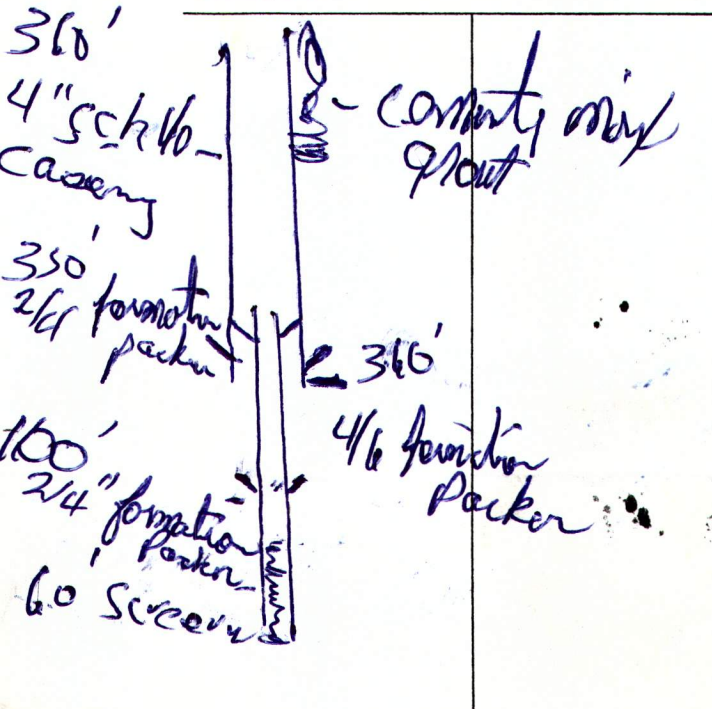 360'
4" sch 40
Casing
350'
2/4 formation
packer
100'
2/4" formation
packer
60' Screen
mix
grout
360'
4/6 formation
Packer